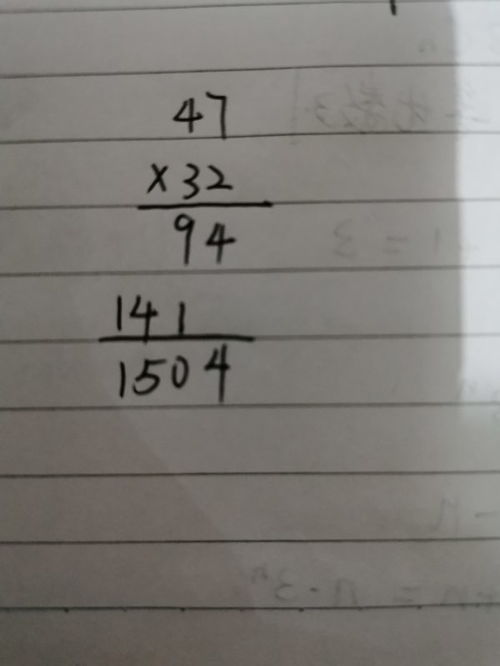 47
×32
94
141
1504